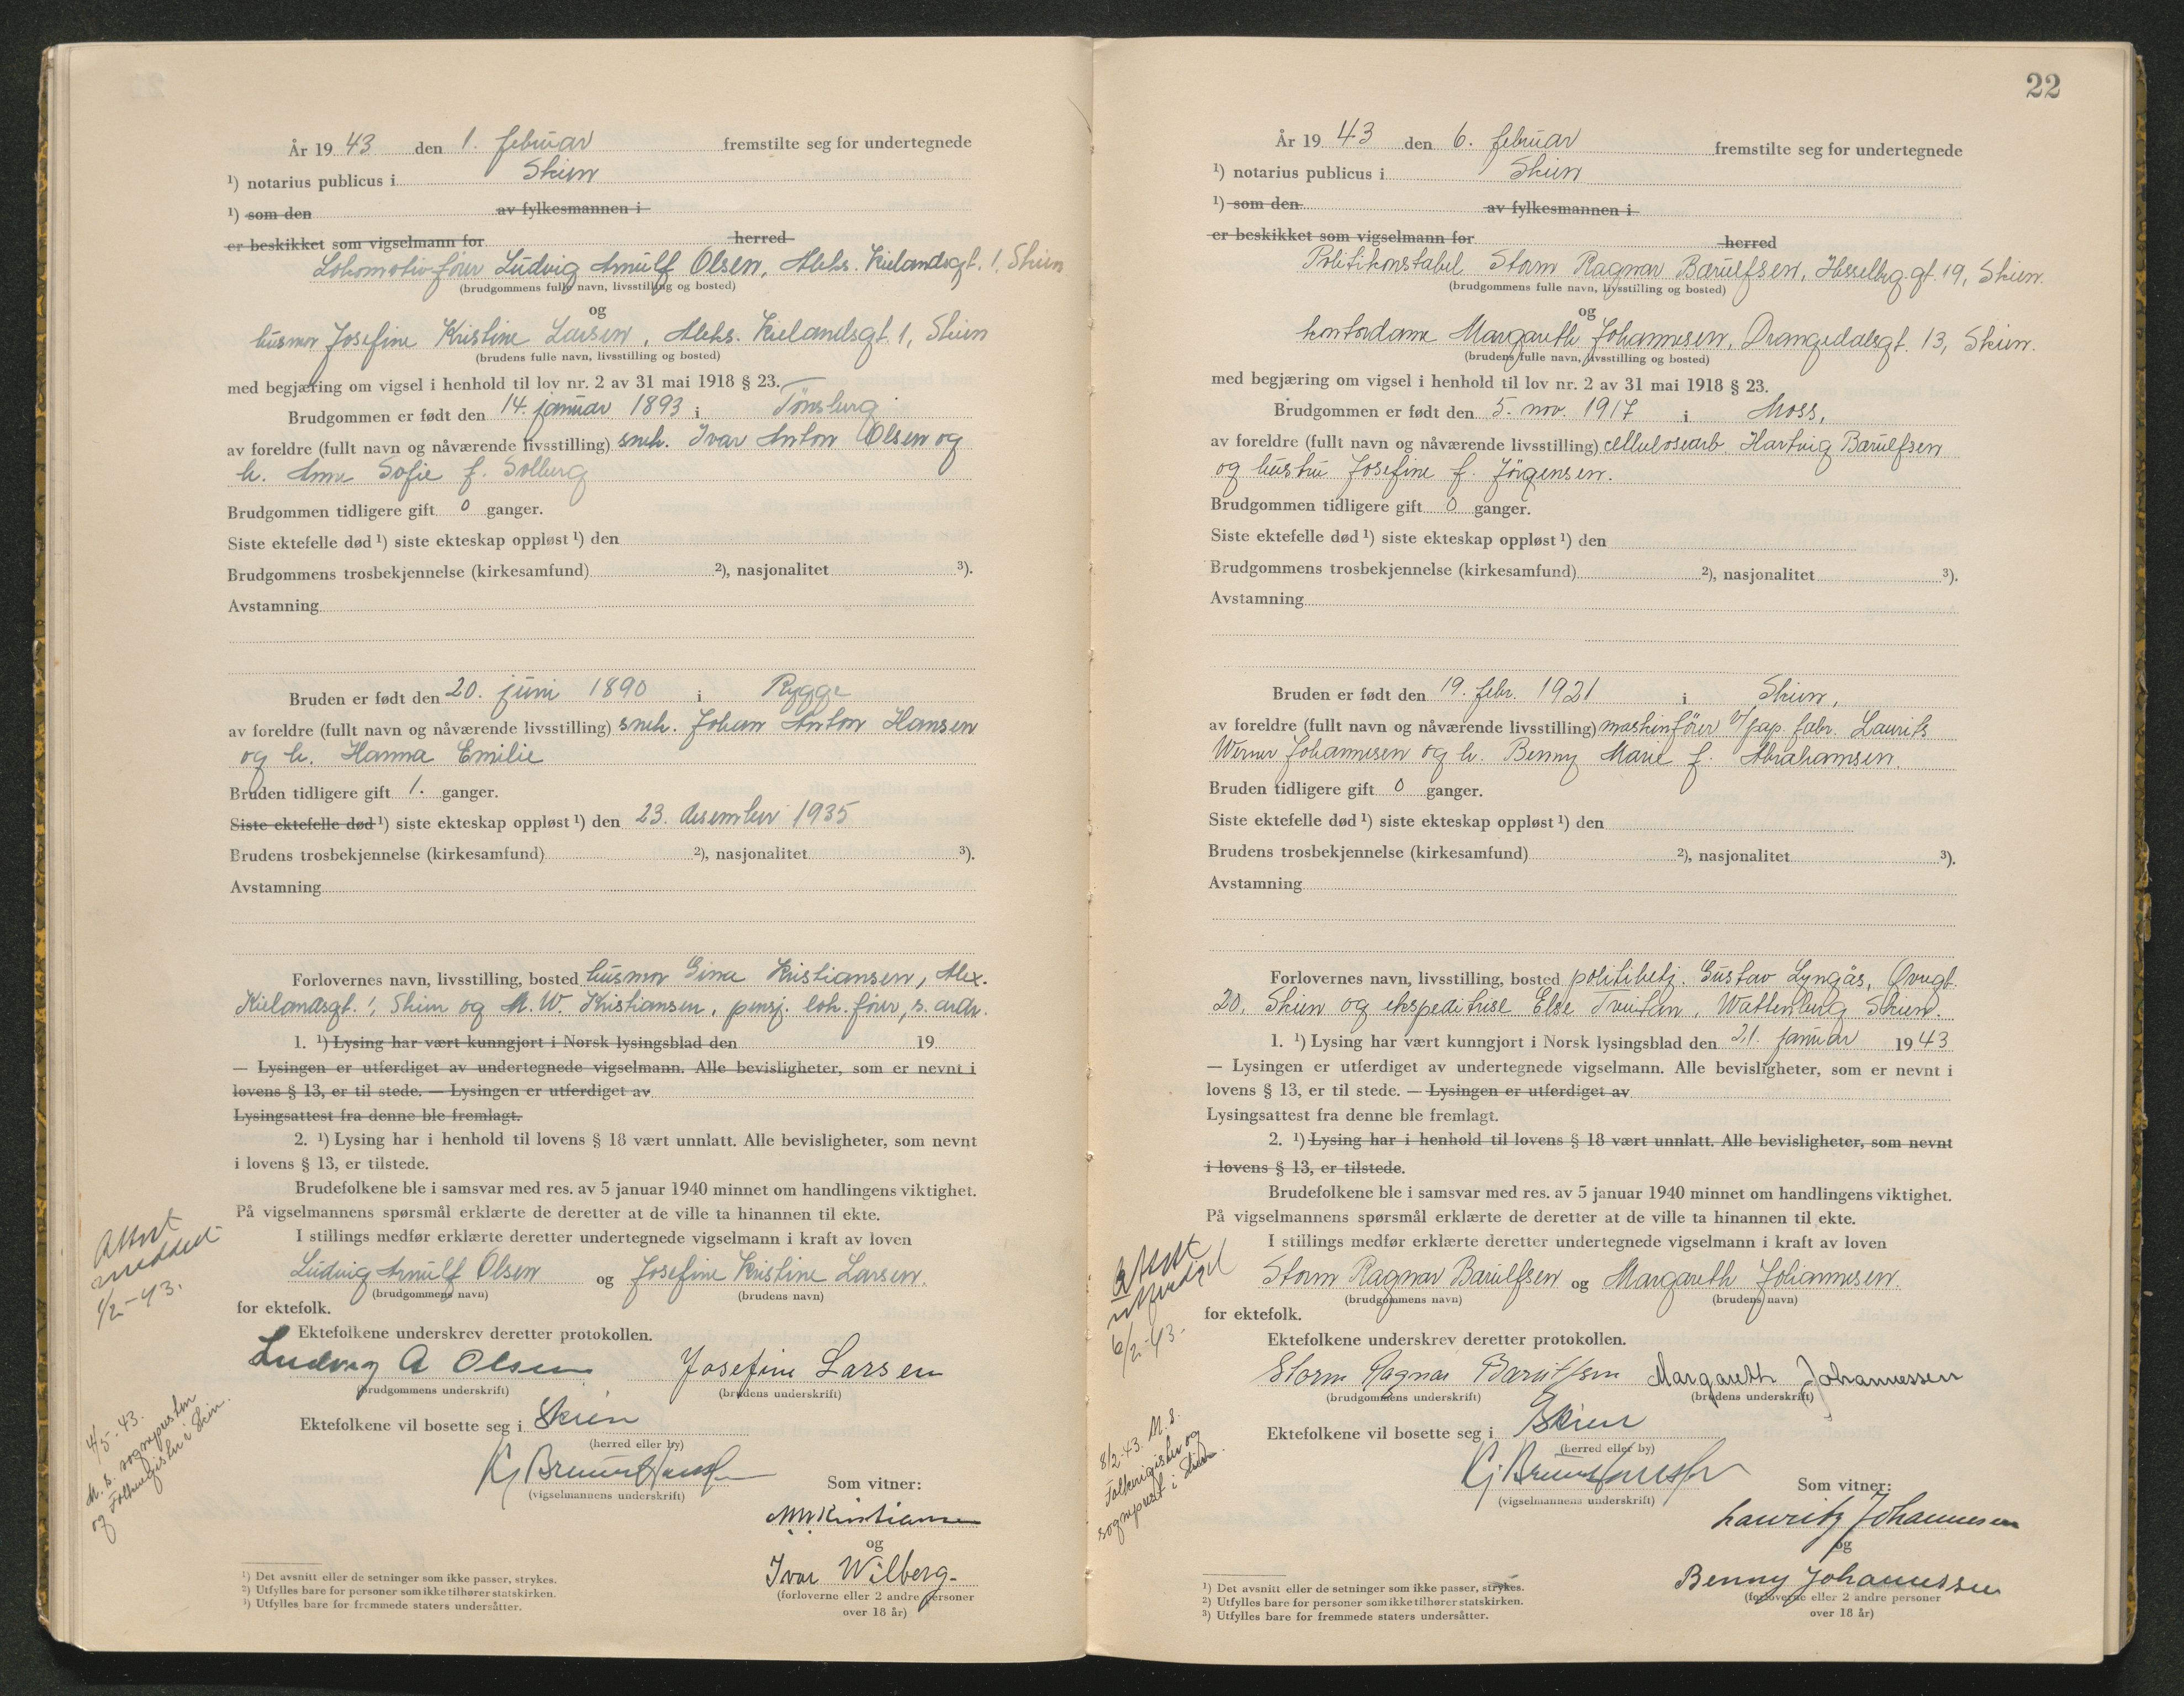 År 19 43 den 1. februar fremstilte seg for undertegnede
¹) notarius publicus i Skien
¹) som den av fylkesmannen i
er beskikket som vigselmann for herred
Lokomotivfører Ludvig Arnulf Olsen, Aleks. Kielandsgt. 1, Skien
(brudgommens fulle navn, livsstilling og bosted)
og
husmor Josefine Kristine Larsen, Aleks. Kielandsgt. 1, Skien
(brudens fulle navn, livsstilling og bosted)
med begjæring om vigsel i henhold til lov nr. 2 av 31 mai 1918 § 23.
Brudgommen er født den 14. januar 1893 i Tönsberg
av foreldre (fullt navn og nåværende livsstilling) snek. Ivar Anton Olsen og
h. Anne Sofie f. Solberg
Brudgommen tidligere gift 0 ganger.
Siste ektefelle død ¹) siste ekteskap oppløst ¹) den
Brudgommens trosbekjennelse (kirkesamfund) ²), nasjonalitet ³).
Avstamning
Bruden er født den 20. juni 1890 i Rygge
av foreldre (fullt navn og nåværende livsstilling) snek. Johan Anton Hansen
og h. Hanna Emilie
Bruden tidligere gift 1. ganger.
Siste ektefelle død ¹) siste ekteskap oppløst ¹) den 23. desember 1935
Brudens trosbekjennelse (kirkesamfund) ²), nasjonalitet ³).
Avstamning
Forlovernes navn, livsstilling, bosted husmor Gina Kristiansen, Alex.
Kielandsgt. 1, Skien og M. W. Kristiansen, pensj. lok. fører, s. adr.
1. ¹) Lysing har vært kunngjort i Norsk lysingsblad den 19
— Lysingen er utferdiget av undertegnede vigselmann. Alle bevisligheter, som er nevnt i
lovens § 13, er til stede. — Lysingen er utferdiget av
Lysingsattest fra denne ble fremlagt.
2. ¹) Lysing har i henhold til lovens § 18 vært unnlatt. Alle bevisligheter, som nevnt
i lovens § 13, er tilstede.
Brudefolkene ble i samsvar med res. av 5 januar 1940 minnet om handlingens viktighet.
På vigselmannens spørsmål erklærte de deretter at de ville ta hinannen til ekte.
I stillings medfør erklærte deretter undertegnede vigselmann i kraft av loven
Ludvig Arnulf Olsen og Josefine Kristine Larsen.
(brudgommens navn) (brudens navn)
for ektefolk.
Ektefolkene underskrev deretter protokollen.
Ludvig A Olsen Josefine Larsen
(brudgommens underskrift) (brudens underskrift)
Ektefolkene vil bosette seg i Skien
(herred eller by)
(vigselmannens underskrift)
Som vitner:
MWKristiansen
og
Ivar Wilberg.
(forloverne eller 2 andre personer
over 18 år)
¹) Det avsnitt eller de setninger som ikke passer, strykes.
²) Utfylles bare for personer som ikke tilhører statskirken.
³) Utfylles bare for fremmede staters undersåtter.
Attest
meddelt
1/2-43.
4/5-43.
M. s. sognepresten
og Folkeregistr. i Skien.
22
År 19 43 den 6. februar fremstilte seg for undertegnede
¹) notarius publicus i Skien
¹) som den av fylkesmannen i
er beskikket som vigselmann for herred
Politikonstabel Storm Ragnar Barulfsen, Hesselbg.gt. 19, Skien.
(brudgommens fulle navn, livsstilling og bosted)
og
kontordame Margareth Johannesen, Drangedalsgt. 13, Skien.
(brudens fulle navn, livsstilling og bosted)
med begjæring om vigsel i henhold til lov nr. 2 av 31 mai 1918 § 23.
Brudgommen er født den 5. nov. 1917 i Moss,
av foreldre (fullt navn og nåværende livsstilling) cellulosearb. Hartvig Barulfsen
og hustru Josefine f. Jörgensen.
Brudgommen tidligere gift 0 ganger.
Siste ektefelle død ¹) siste ekteskap oppløst ¹) den
Brudgommens trosbekjennelse (kirkesamfund) ²), nasjonalitet ³).
Avstamning
Bruden er født den 19. febr. 1921 i Skien,
av foreldre (fullt navn og nåværende livsstilling) maskinförer v/pap. fabr. Laurits
Werner Johannesen og h. Benny Marie f. Abrahamsen.
Bruden tidligere gift 0 ganger.
Siste ektefelle død ¹) siste ekteskap oppløst ¹) den
Brudens trosbekjennelse (kirkesamfund) ²), nasjonalitet ³).
Avstamning
Forlovernes navn, livsstilling, bosted politibetj. Gustav Lyngås, Øvregt.
20, Skien og ekspeditrise Else Tveitan, Wattenberg Skien.
1. ¹) Lysing har vært kunngjort i Norsk lysingsblad den 21. januar 19 43
— Lysingen er utferdiget av undertegnede vigselmann. Alle bevisligheter, som er nevnt i
lovens § 13, er til stede. — Lysingen er utferdiget av
Lysingsattest fra denne ble fremlagt.
2. ¹) Lysing har i henhold til lovens § 18 vært unnlatt. Alle bevisligheter, som nevnt
i lovens § 13, er tilstede.
Brudefolkene ble i samsvar med res. av 5 januar 1940 minnet om handlingens viktighet.
På vigselmannens spørsmål erklærte de deretter at de ville ta hinannen til ekte.
I stillings medfør erklærte deretter undertegnede vigselmann i kraft av loven
Storm Ragnar Barulfsen og Margareth Johannesen.
(brudgommens navn) (brudens navn)
for ektefolk.
Ektefolkene underskrev deretter protokollen.
Storm Ragnar Barulfsen Margareth Johannessen
(brudgommens underskrift) (brudens underskrift)
Ektefolkene vil bosette seg i Skien
(herred eller by)
(vigselmannens underskrift)
Som vitner:
Lauritz Johannesen
og
Benny Johannessen
(forloverne eller 2 andre personer
over 18 år)
¹) Det avsnitt eller de setninger som ikke passer, strykes.
²) Utfylles bare for personer som ikke tilhører statskirken.
³) Utfylles bare for fremmede staters undersåtter.
Attest
utferdget
6/2-43.
8/2-43. M. s.
Folkeregister og
sogneprest i Skien.